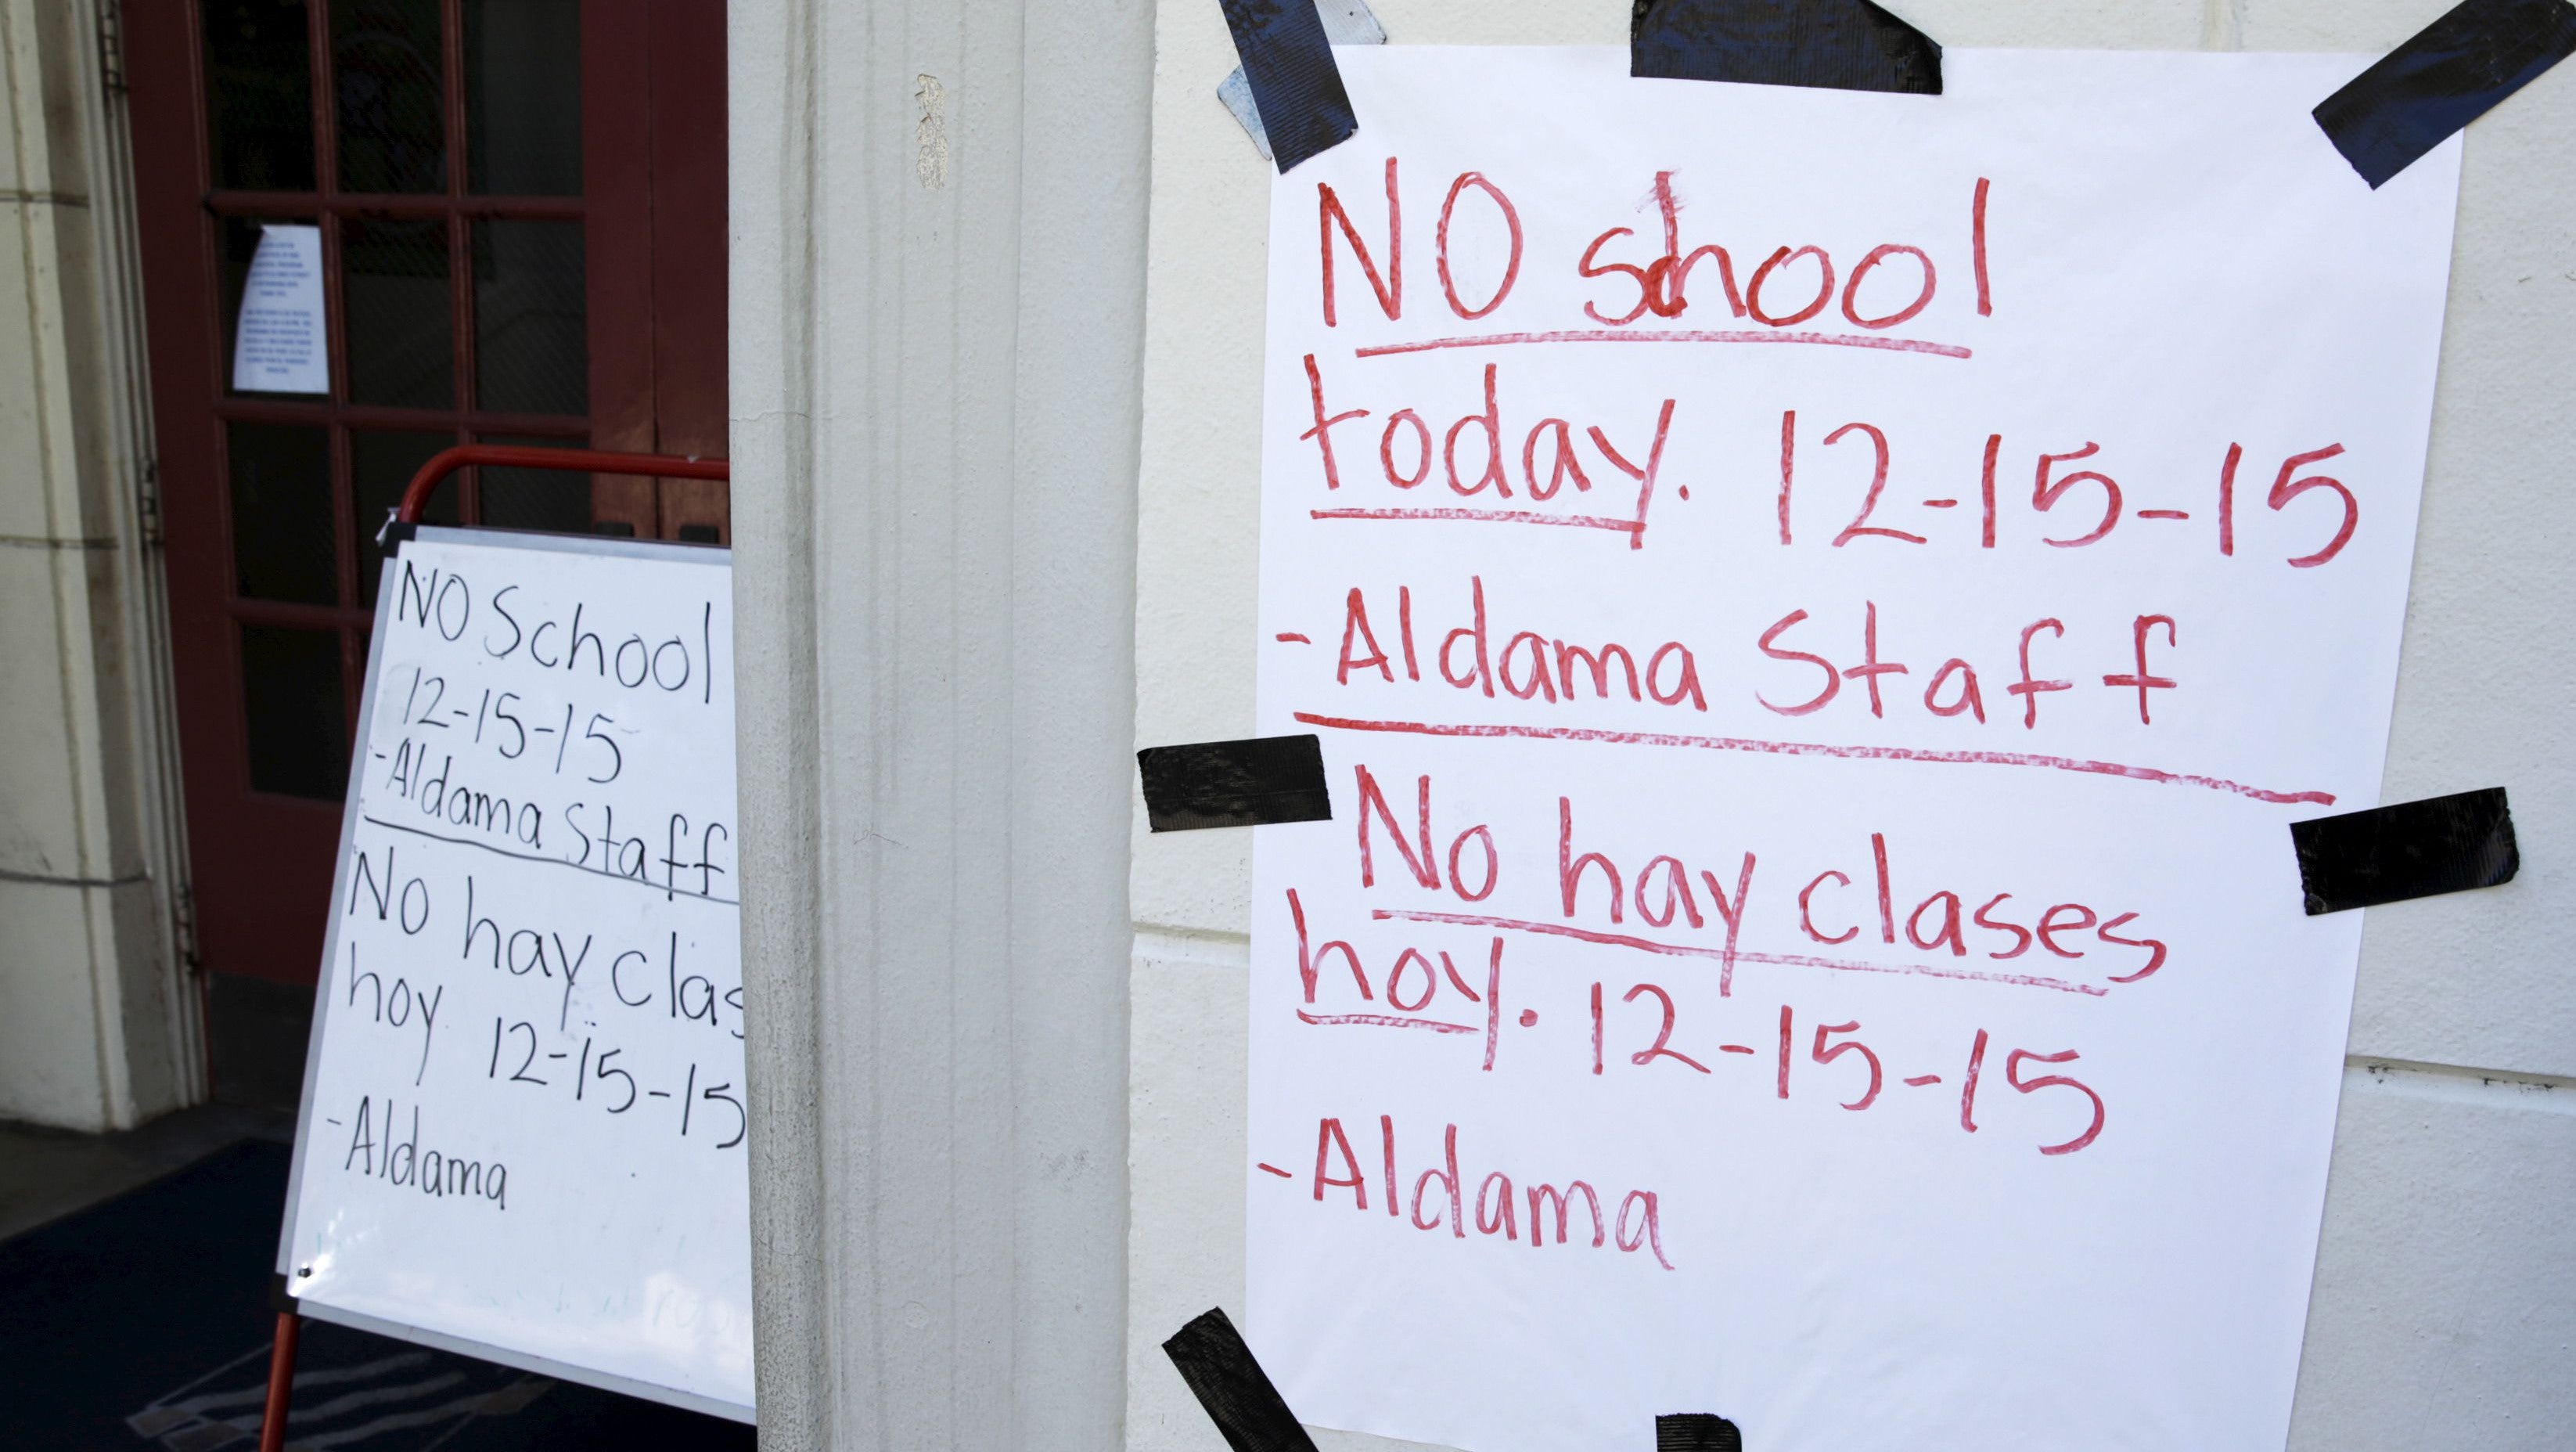 NO School
12-15-15
-Aldama Staff
No hay clas
hoy 12-15-15
-Aldama
NO shool
today. 12-15-15
-Aldama Staff
No hay clases
hoy. 12-15-15
-Aldama